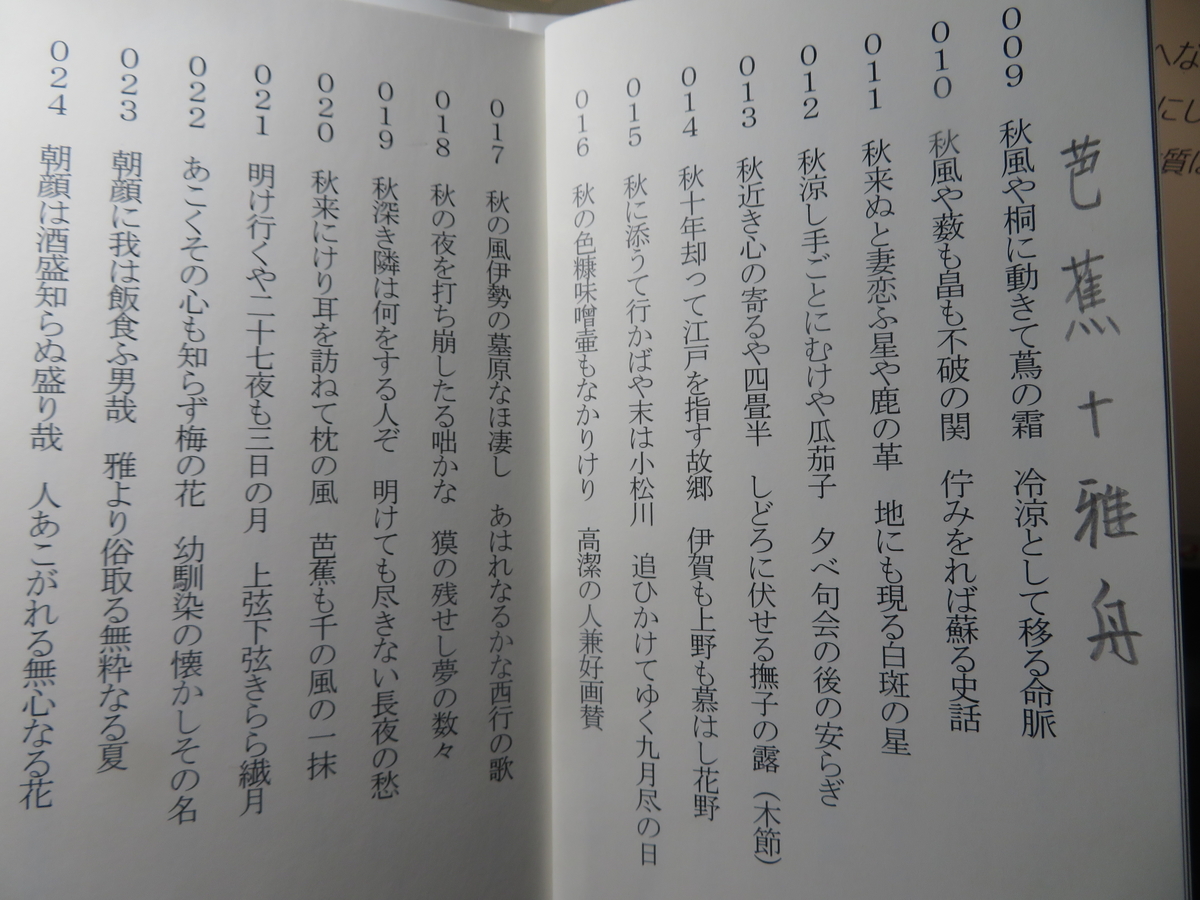 芭蕉十雅舟
009 秋風や桐に動きて蔦の霜 冷涼として移る命脈
010 秋風や薮も畠も不破の関 佇みをれば蘇る史話
011 秋来ぬと妻恋ふ星や鹿の革 地にも現る白斑の星
012 秋涼し手ごとにむけや瓜茄子 夕べ句会の後の安らぎ
013 秋近き心の寄るや四畳半 しどろに伏せる撫子の露(木節)
014 秋十年却って江戸を指す故郷 伊賀も上野も慕はし花野
015 秋に添うて行かばや末は小松川 追ひかけてゆく九月尽の日
016 秋の色糠味噌壷もなかりけり 高潔の人兼好画賛
017 秋の風伊勢の墓原なほ凄し あはれなるかな西行の歌
018 秋の夜を打ち崩したる咄かな 獏の残せし夢の数々
019 秋深き隣は何をする人ぞ 明けても尽きない長夜の愁
020 秋来にけり耳を訪ねて枕の風 芭蕉も千の風の一抹
021 明け行くや二十七夜も三日の月 上弦下弦きらら繊月
022 あこくその心も知らず梅の花 幼馴染の懐かしその名
023 朝顔に我は飯食ふ男哉 雅より俗取る無粋なる夏
024 朝顔は酒盛知らぬ盛り哉 人あこがれる無心なる花
へな
にし
質は